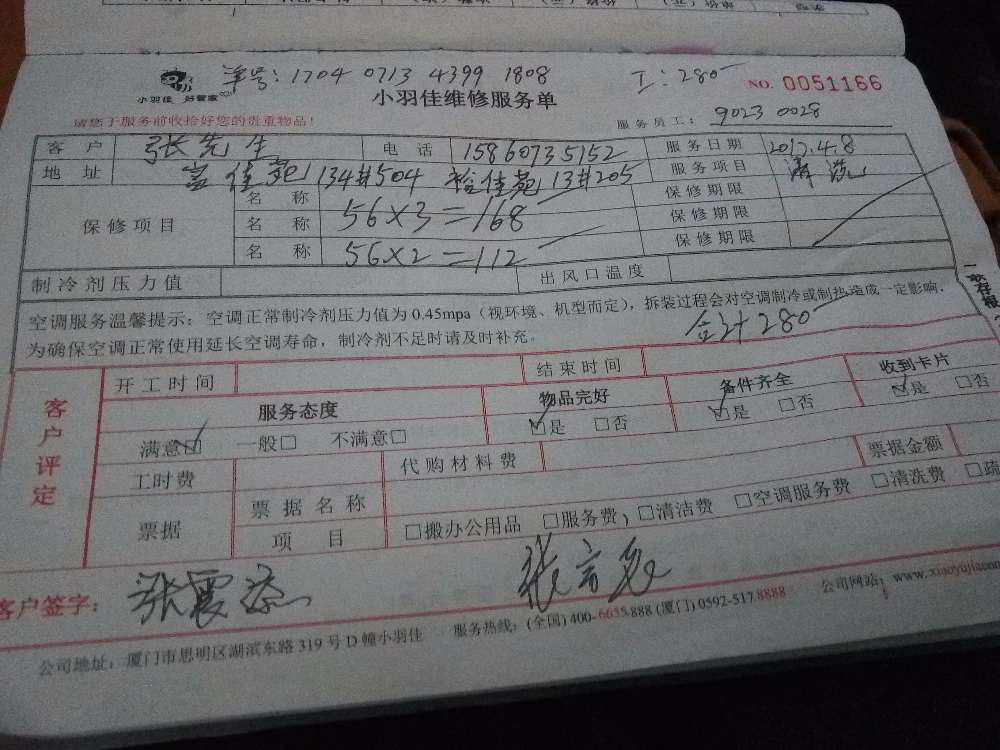 单号: 1704 0713 4399 1808 工: 280
小羽佳 好管家 小羽佳维修服务单 NO. 0051166
请您于服务前收拾好您的贵重物品! 服务员工: 9023 0028
客户 张先生 电话 15860735152 服务日期 2017.4.8
地址 富佳苑134#504 裕佳苑13#205 服务项目 清洗
保修项目 名称 56×3=168 保修期限
名称 保修期限
名称 56×2=112 保修期限
制冷剂压力值 出风口温度
空调服务温馨提示: 空调正常制冷剂压力值为0.45mpa(视环境、机型而定), 拆装过程会对空调制冷或制热造成一定影响.
为确保空调正常使用延长空调寿命, 制冷剂不足时请及时补充。 合计280
客户评定 开工时间 结束时间
服务态度 物品完好 备件齐全 收到卡片
满意☑ 一般□ 不满意□ ☑是 □否 ☑是 □否 ☑是 □否
工时费 代购材料费 票据金额
票据 票据名称
项目 □搬办公用品 □服务费) □清洁费 □空调服务费 □清洗费 □疏
客户签字: 张
公司地址: 厦门市思明区湖滨东路319号D幢小羽佳 服务热线: (全国) 400-6655-888 (厦门) 0592-517 8888 公司网站: www.xiaoyujiacom